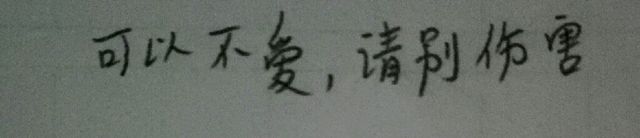 可以不爱,请别伤害